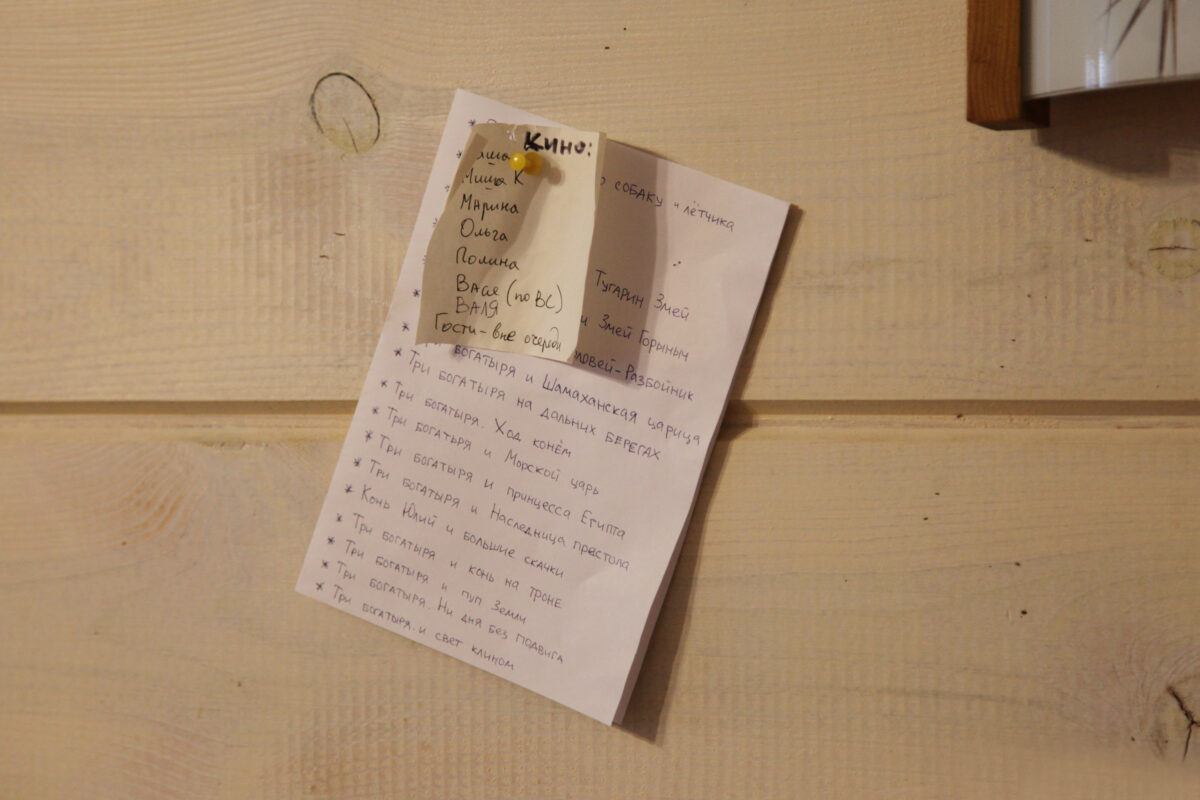 Кино:
Миша К
Марина
Ольга
Полина
Вася (по ВС)
ВАЛЯ
Гости - вне очереди
собаку и лётчика
Тугарин Змей
и Змей Горыныч
ловей-Разбойник
богатыря и Шамаханская царица
* Три богатыря на дальних берегах
* Три богатыря. Ход конём
* Три богатыря и Морской царь
* Три богатыря и принцесса Египта
* Три богатыря и Наследница престола
* Конь Юлий и большие скачки
* Три богатыря и конь на троне
* Три богатыря и пуп Земли
* Три богатыря. Ни дня без подвига
* Три богатыря и свет клином